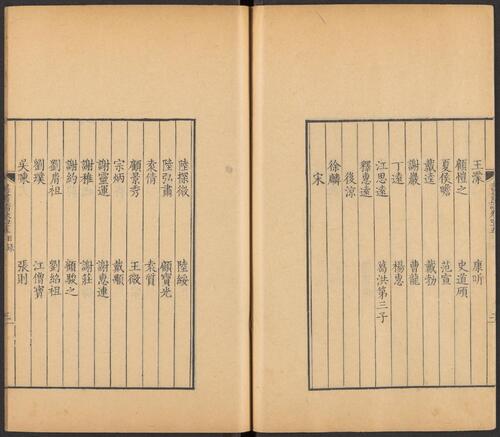 王濛 康昕
顧愷之 史道碩
夏侯瞻 范宣
戴逵 戴勃
謝巖 曹龍
丁遠 楊惠
江思遠 葛洪第三子
釋惠遠
後涼
徐麟
宋
陸探微 陸綏
陸弘肅 顧寶光
袁倩 袁質
顧景秀 王微
宗炳 戴顒
謝靈運 謝惠連
謝稚 謝莊
謝約 顧駿之
劉胤祖 劉紹祖
劉璞 江僧寶
吳暕 張則